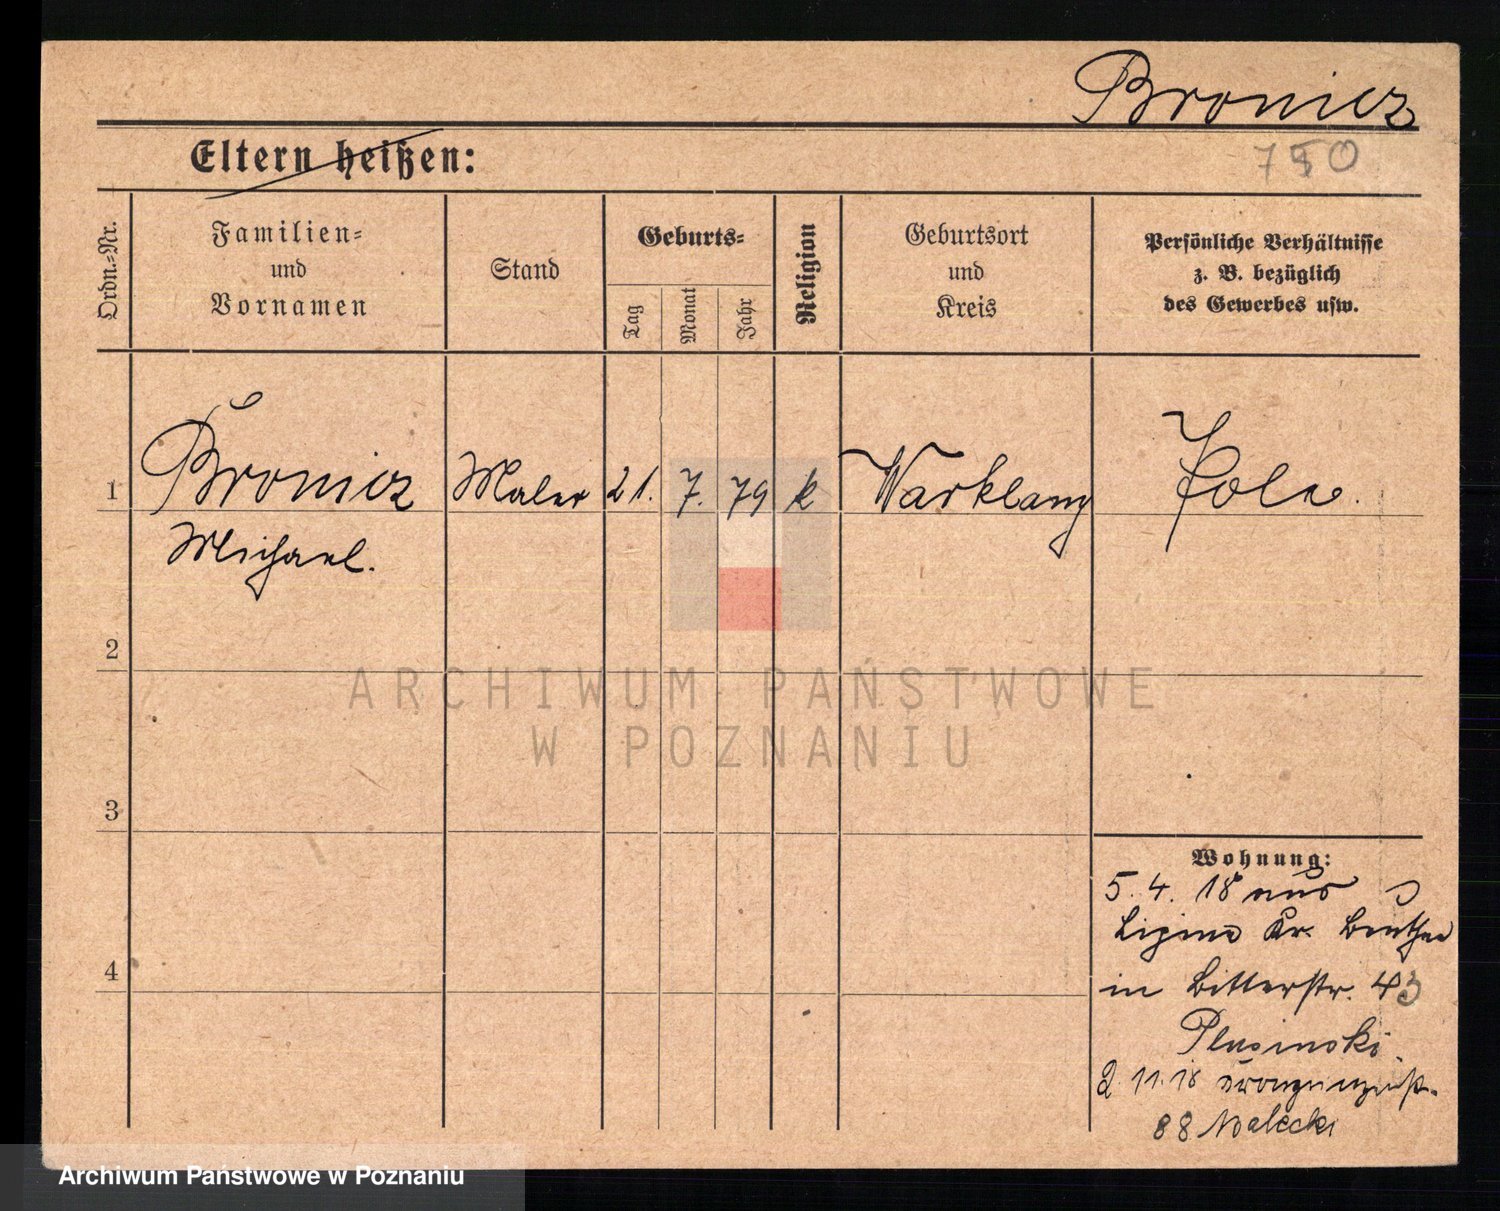 Bronicz
750
Eltern heißen:
Ordn.-Nr.
Familien-
und
Vornamen
Stand
Geburts-
Tag
Monat
Jahr
Religion
Geburtsort
und
Kreis
Persönliche Verhältnisse
z. B. bezüglich
des Gewerbes usw.
1 Bronicz Maler 21. 7. 79 k Warklang Pole.
Michael.
2
3
4
Wohnung:
5. 4. 18 aus
Lipine Kr. Beuthen
in Bitterstr. 43
Plusinski
2. 11. 18
88 Malecki
ARCHIWUM PAŃSTWOWE
W POZNANIU
Archiwum Państwowe w Poznaniu